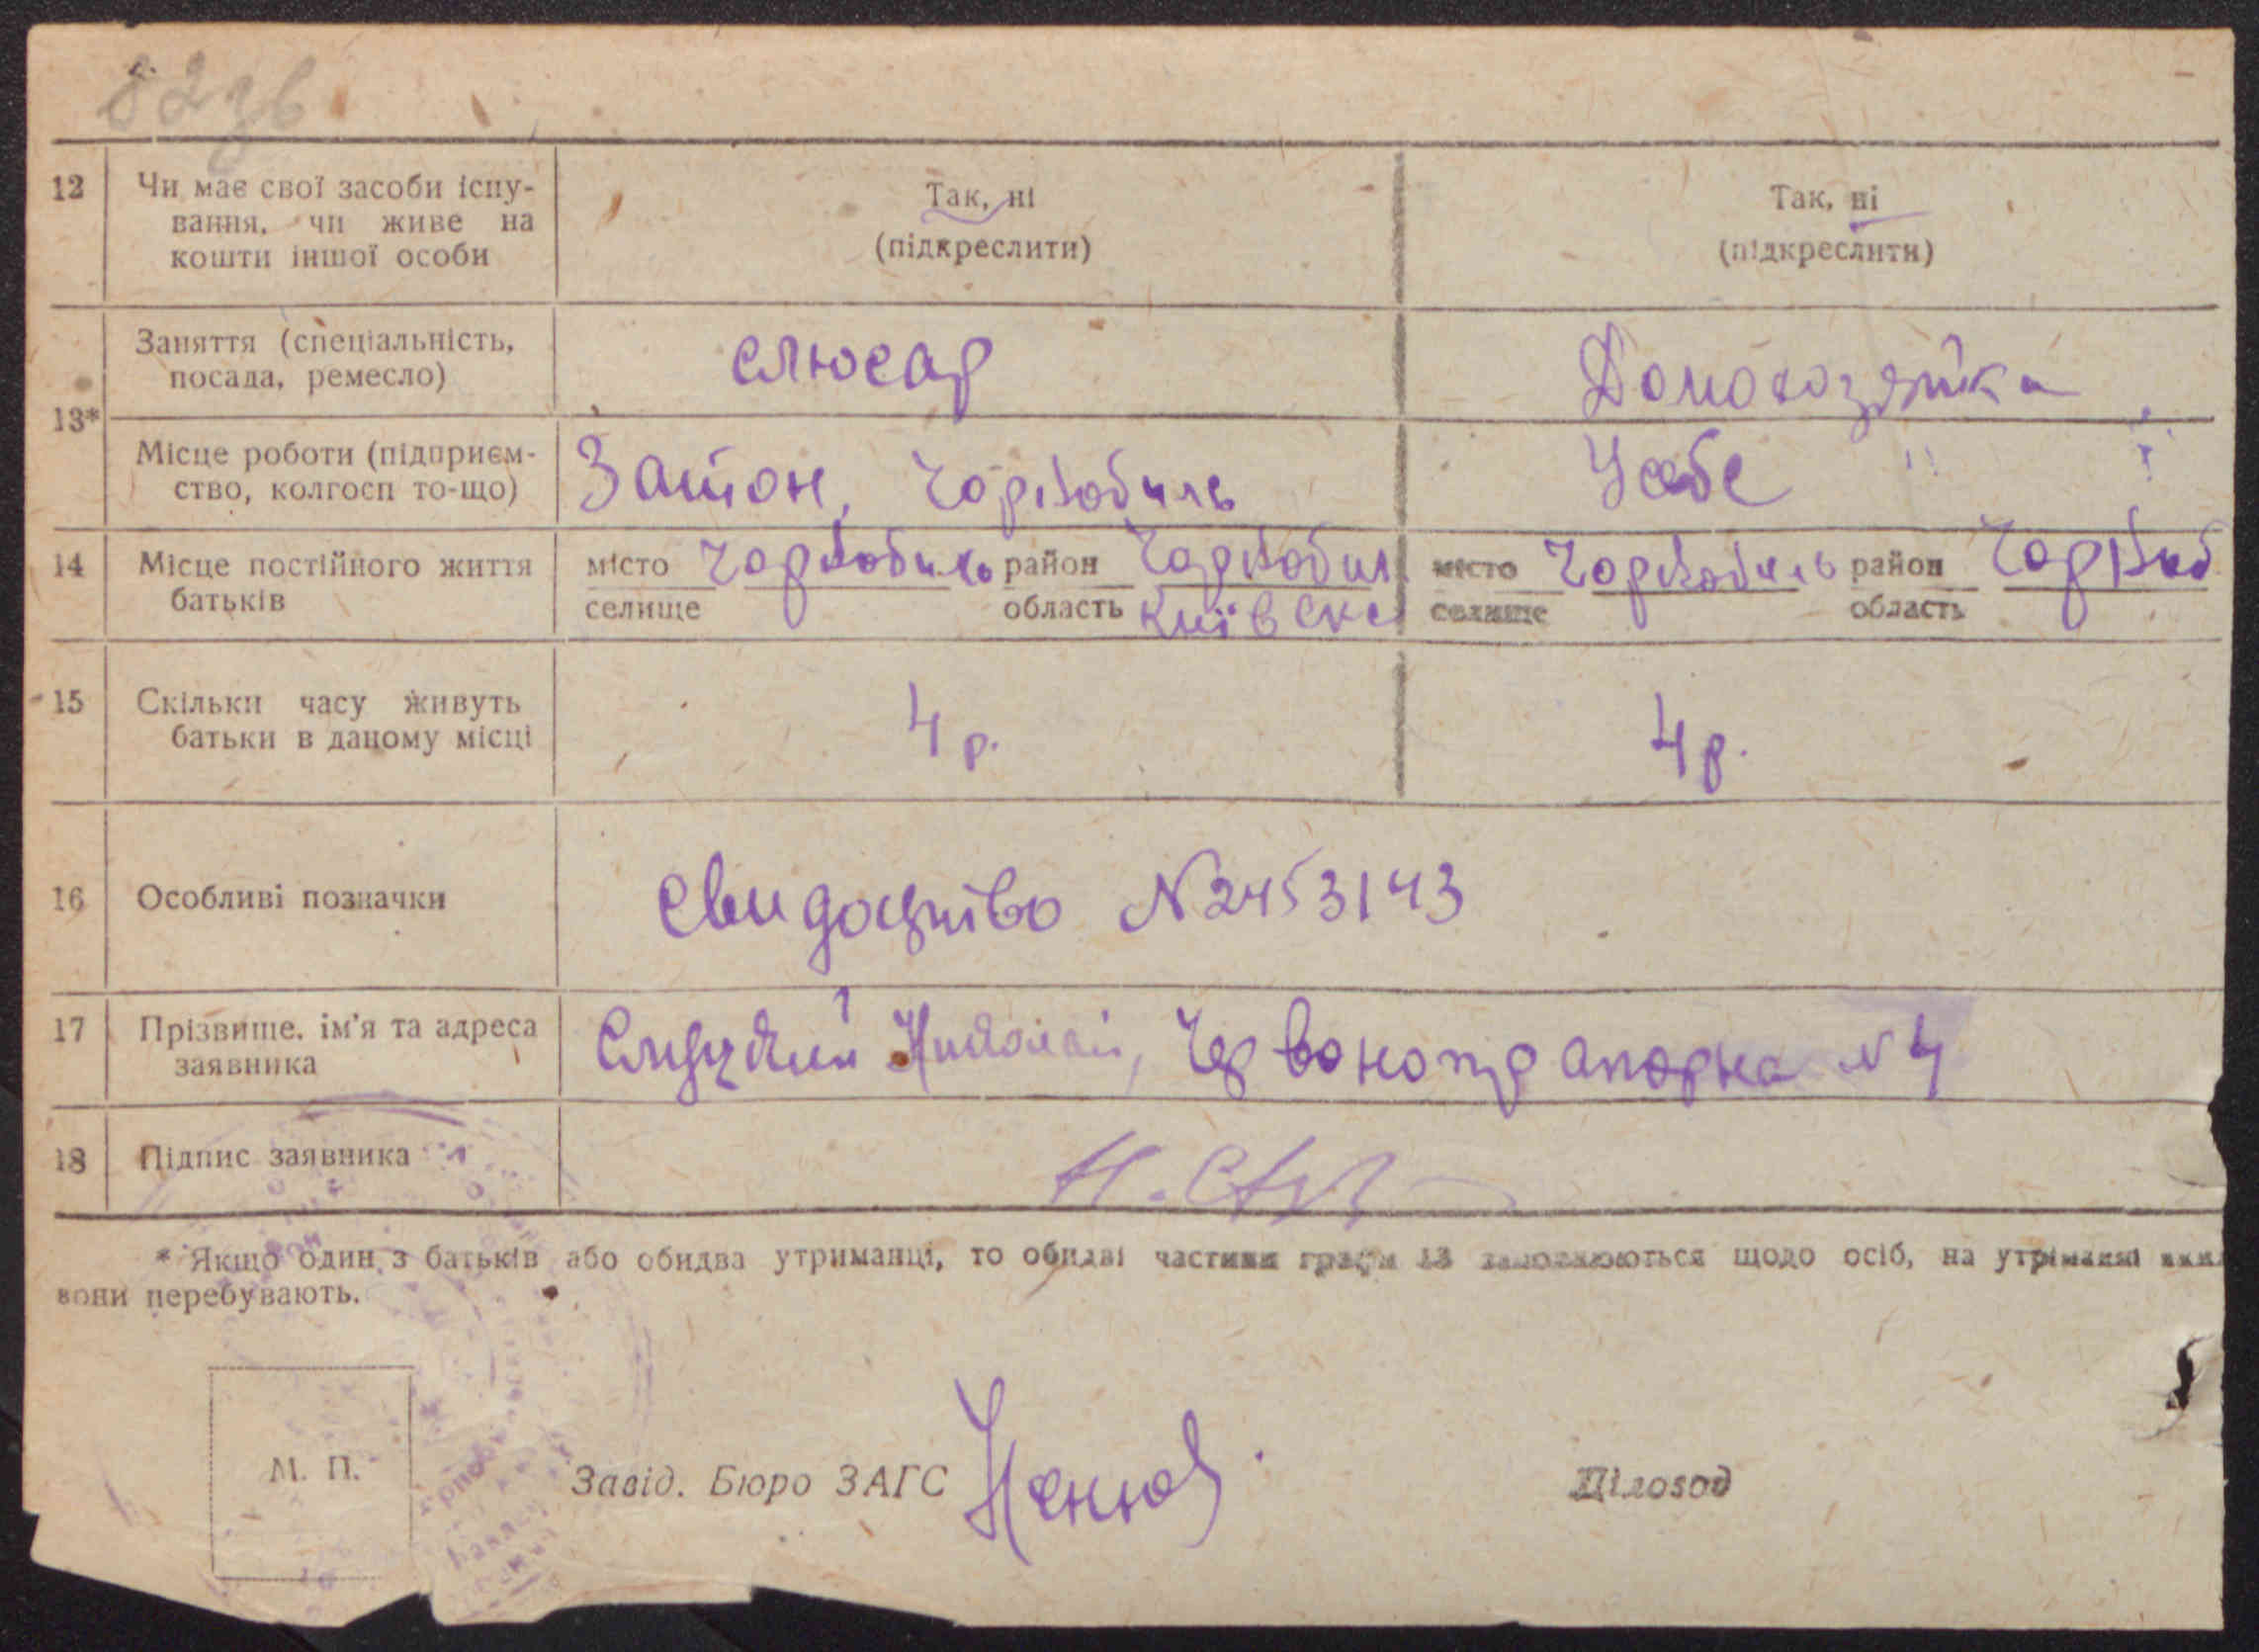 12 Чи має свої засоби існу-
вання, чи живе на
кошти іншої особи
Так, ні
(підкреслити)
Так, ні
(підкреслити)
13*
Заняття (спеціальність,
посада, ремесло)
слюсар
Домохозяйка
Місце роботи (підприєм-
ство, колгосп то-що)
Затон, Чорнобиль
У себе
14 Місце постійного життя
батьків
місто Чорнобиль район Чорнобил
селище область Київська
місто Чорнобиль район Чорноб
селище область
15 Скільки часу живуть
батьки в даному місці
4 р.
4 р.
16 Особливі позначки
Свидоцтво N 2453143
17 Прізвище, ім'я та адреса
заявника
Николай, Червонопрапорна N 4
18 Підпис заявника
* Якщо один з батьків або обидва утриманці, то обидві частини графи 13 заповнюються щодо осіб, на утриманні яких
вони перебувають.
М. П.
Завід. Бюро ЗАГС
Діловод